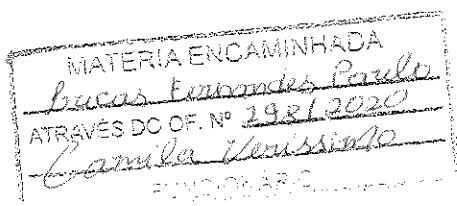 MATERIA ENCAMINHADA
Lucas Fernandes Paulo
ATRAVÉS DO OF. Nº 298/2020
Camila Verissimo
FUNCIONÁRIO